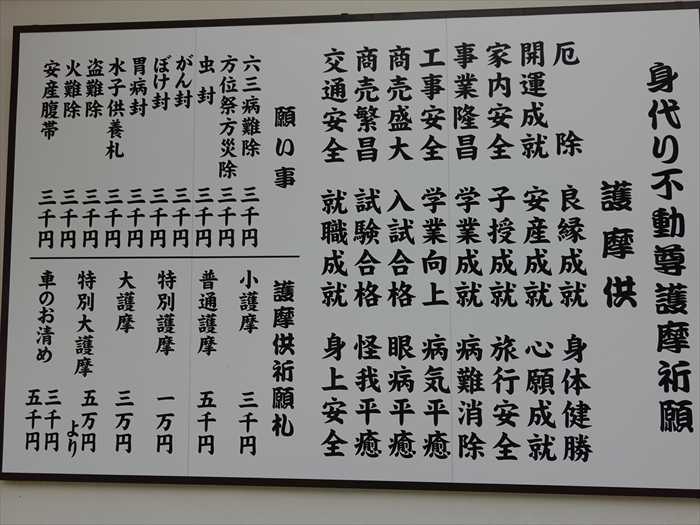 身代り不動尊護摩祈願
護摩供
厄除 良縁成就 身体健勝
開運成就 安産成就 心願成就
家内安全 子授成就 旅行安全
事業隆昌 学業成就 病難消除
工事安全 学業向上 病気平癒
商売盛大 入試合格 眼病平癒
商売繁昌 試験合格 怪我平癒
交通安全 就職成就 身上安全
願い事
六三病難除 三千円
方位祭方災除 三千円
虫封 三千円
がん封 三千円
ぼけ封 三千円
胃病封 三千円
水子供養札 三千円
盗難除 三千円
火難除 三千円
安産腹帯 三千円
護摩供祈願札
小護摩 三千円
普通護摩 五千円
特別護摩 一万円
大護摩 三万円
特別大護摩 五万円より
車のお清め 三千円
五千円